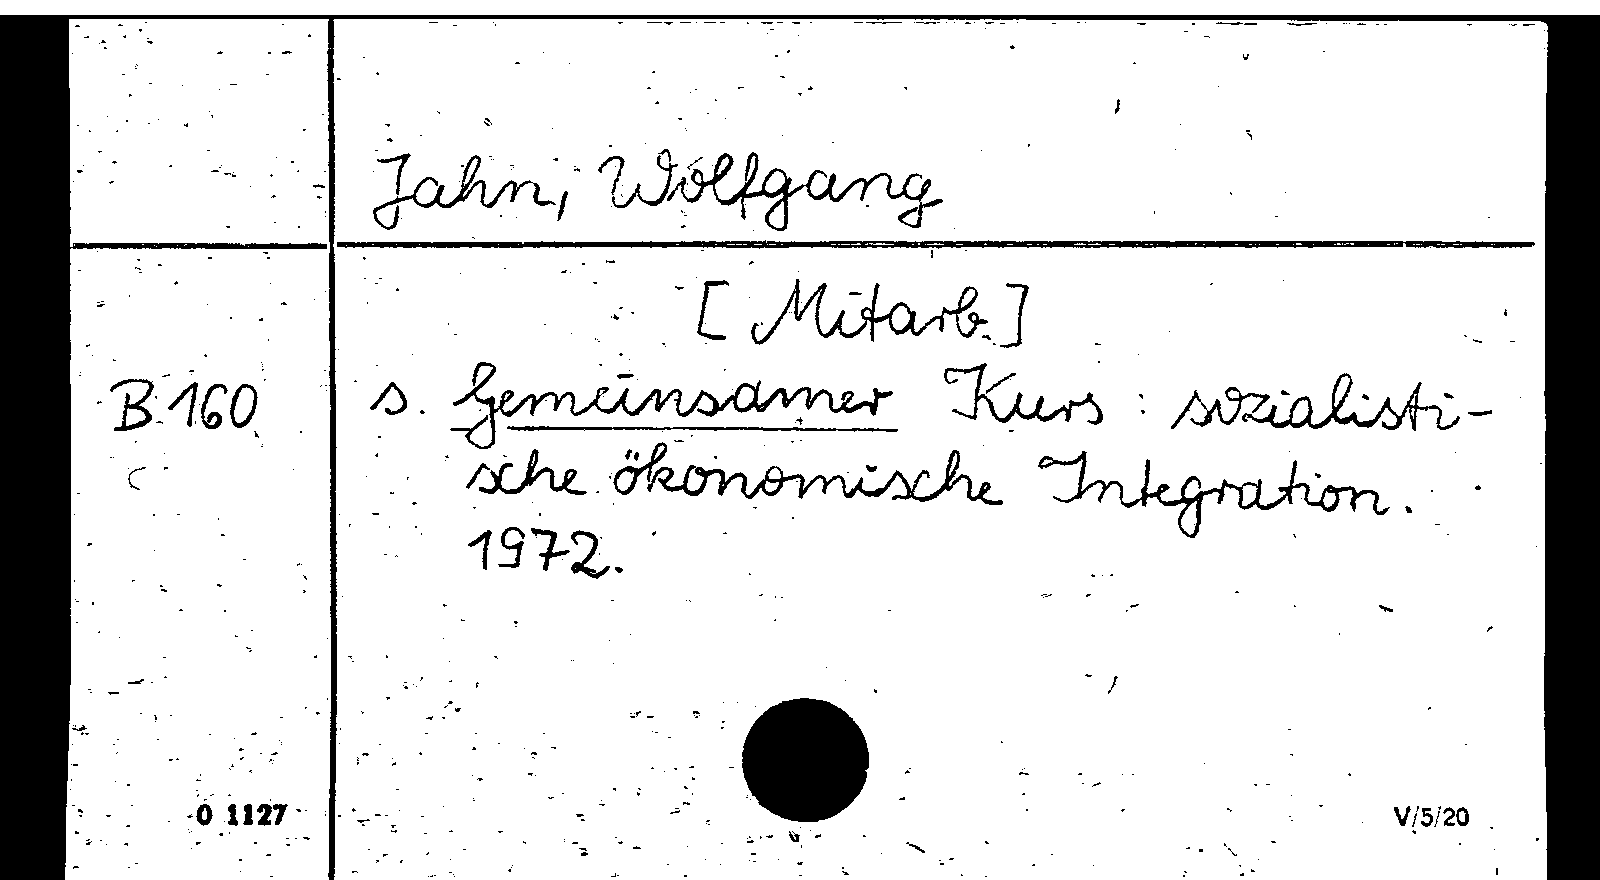 Jahn, Wolfgang
[Mitarb.]
B 160 s. Gemeinsamer Kurs : sozialisti-
sche ökonomische Integration.
1972.
O 1127 V/5/20